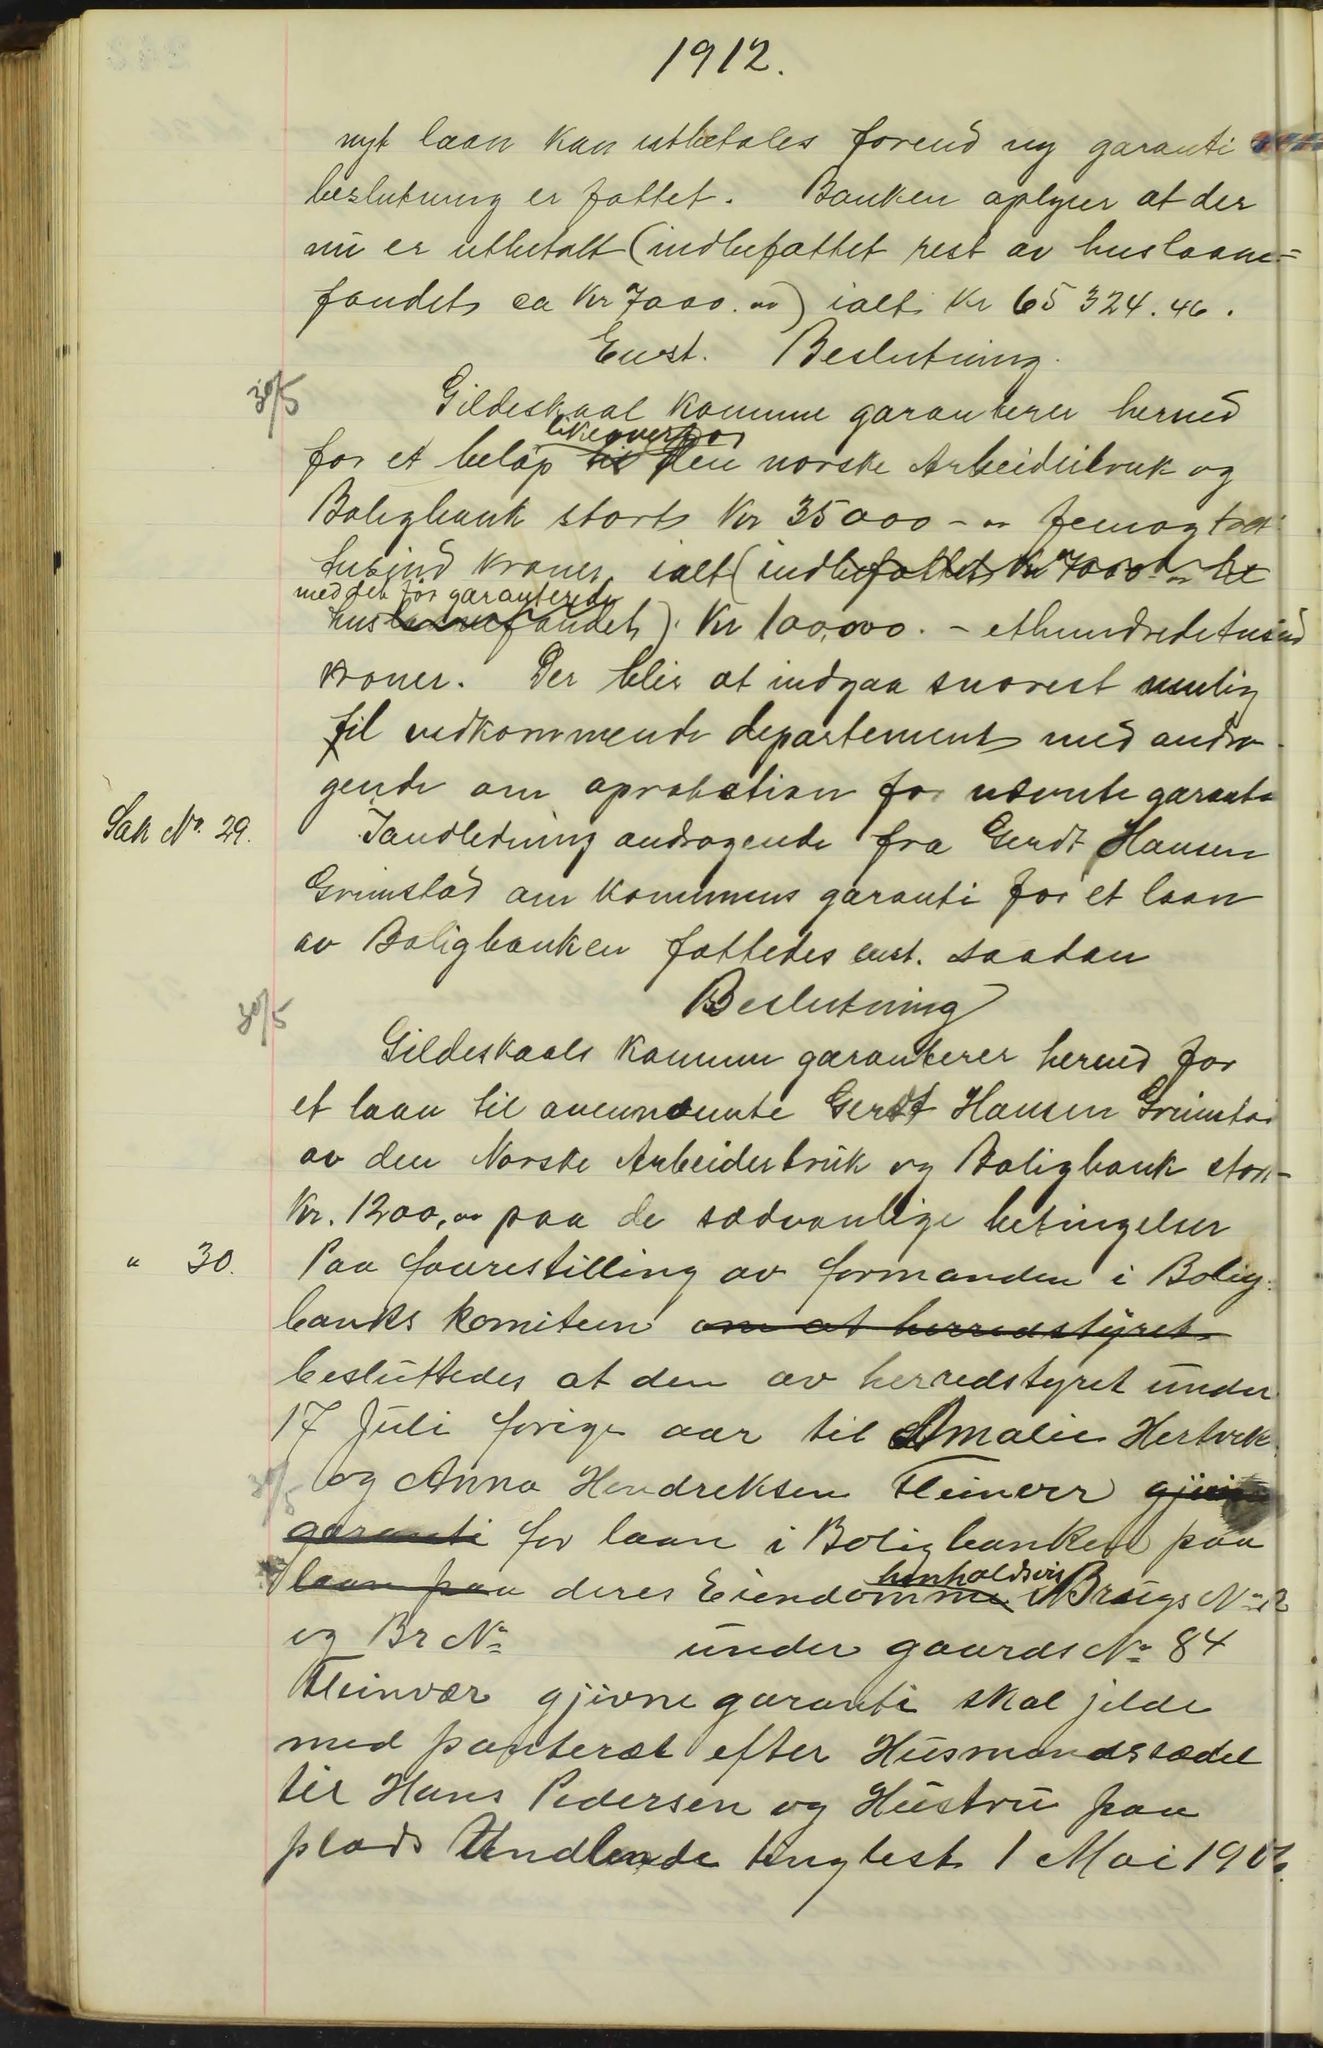 1912.
nyt laan kan utbetales forend ny garanti
beslutning er fattet. Banken oplyser at der
nu er utbetalt (indbefattet rest av huslaane=
fondet ca Kr 7000.00) ialt Kr 65 324.46.
Enst. Beslutning.
30/5
Gildeskaal komune garanterer herved
likeoverfor
for et beløp til Den norske Arbeidsbruk og
Boligbank stort Kr 35000 - oo femogtreti
tusind kroner, ialt (indbefattet Kr 7000 - av
med det før garanterede
huslaanefondet). Kr 100,000. - ethundredetusind
kroner. Der blir at indgaa snarest mulig
til vedkommende departement med andra-
gende om aprobation for nævnte garanti
Sak No. 29.
I anledning andragende fra Gerdt Hansen
Grimstad om kommuns garanti for et laan
av Boligbanken fattedes enst. saadan
Beslutning
30/5
Gildeskaals komun garanterer herved for
et laan til ovennævnte Gerdt Hansen Grimstad
av den Norske Arbeiderbruk og Boligbank stort
Kr. 1200,oo paa de sædvanlige betingelser
" 30.
Paa foorestilling av formanden i Bolig-
banks komiteen om at herredstyret
besluttedes at den av herredstyret under
17 Juli forige aar til Amalie Hertvik
30/5
og Anna Hendreksen Fleinvær gjivne
garanti for laan i Boligbanken paa
laan paa deres Eiendomme
henholdsvis
Brugs No 2
og Br No under gaards No 84
Fleinvær gjivne garanti skal jelde
med panteræt efter Husmandssædel
til Hans Pedersen og Hustru paa
plads Undlende tinglest 1 Mai 1906.